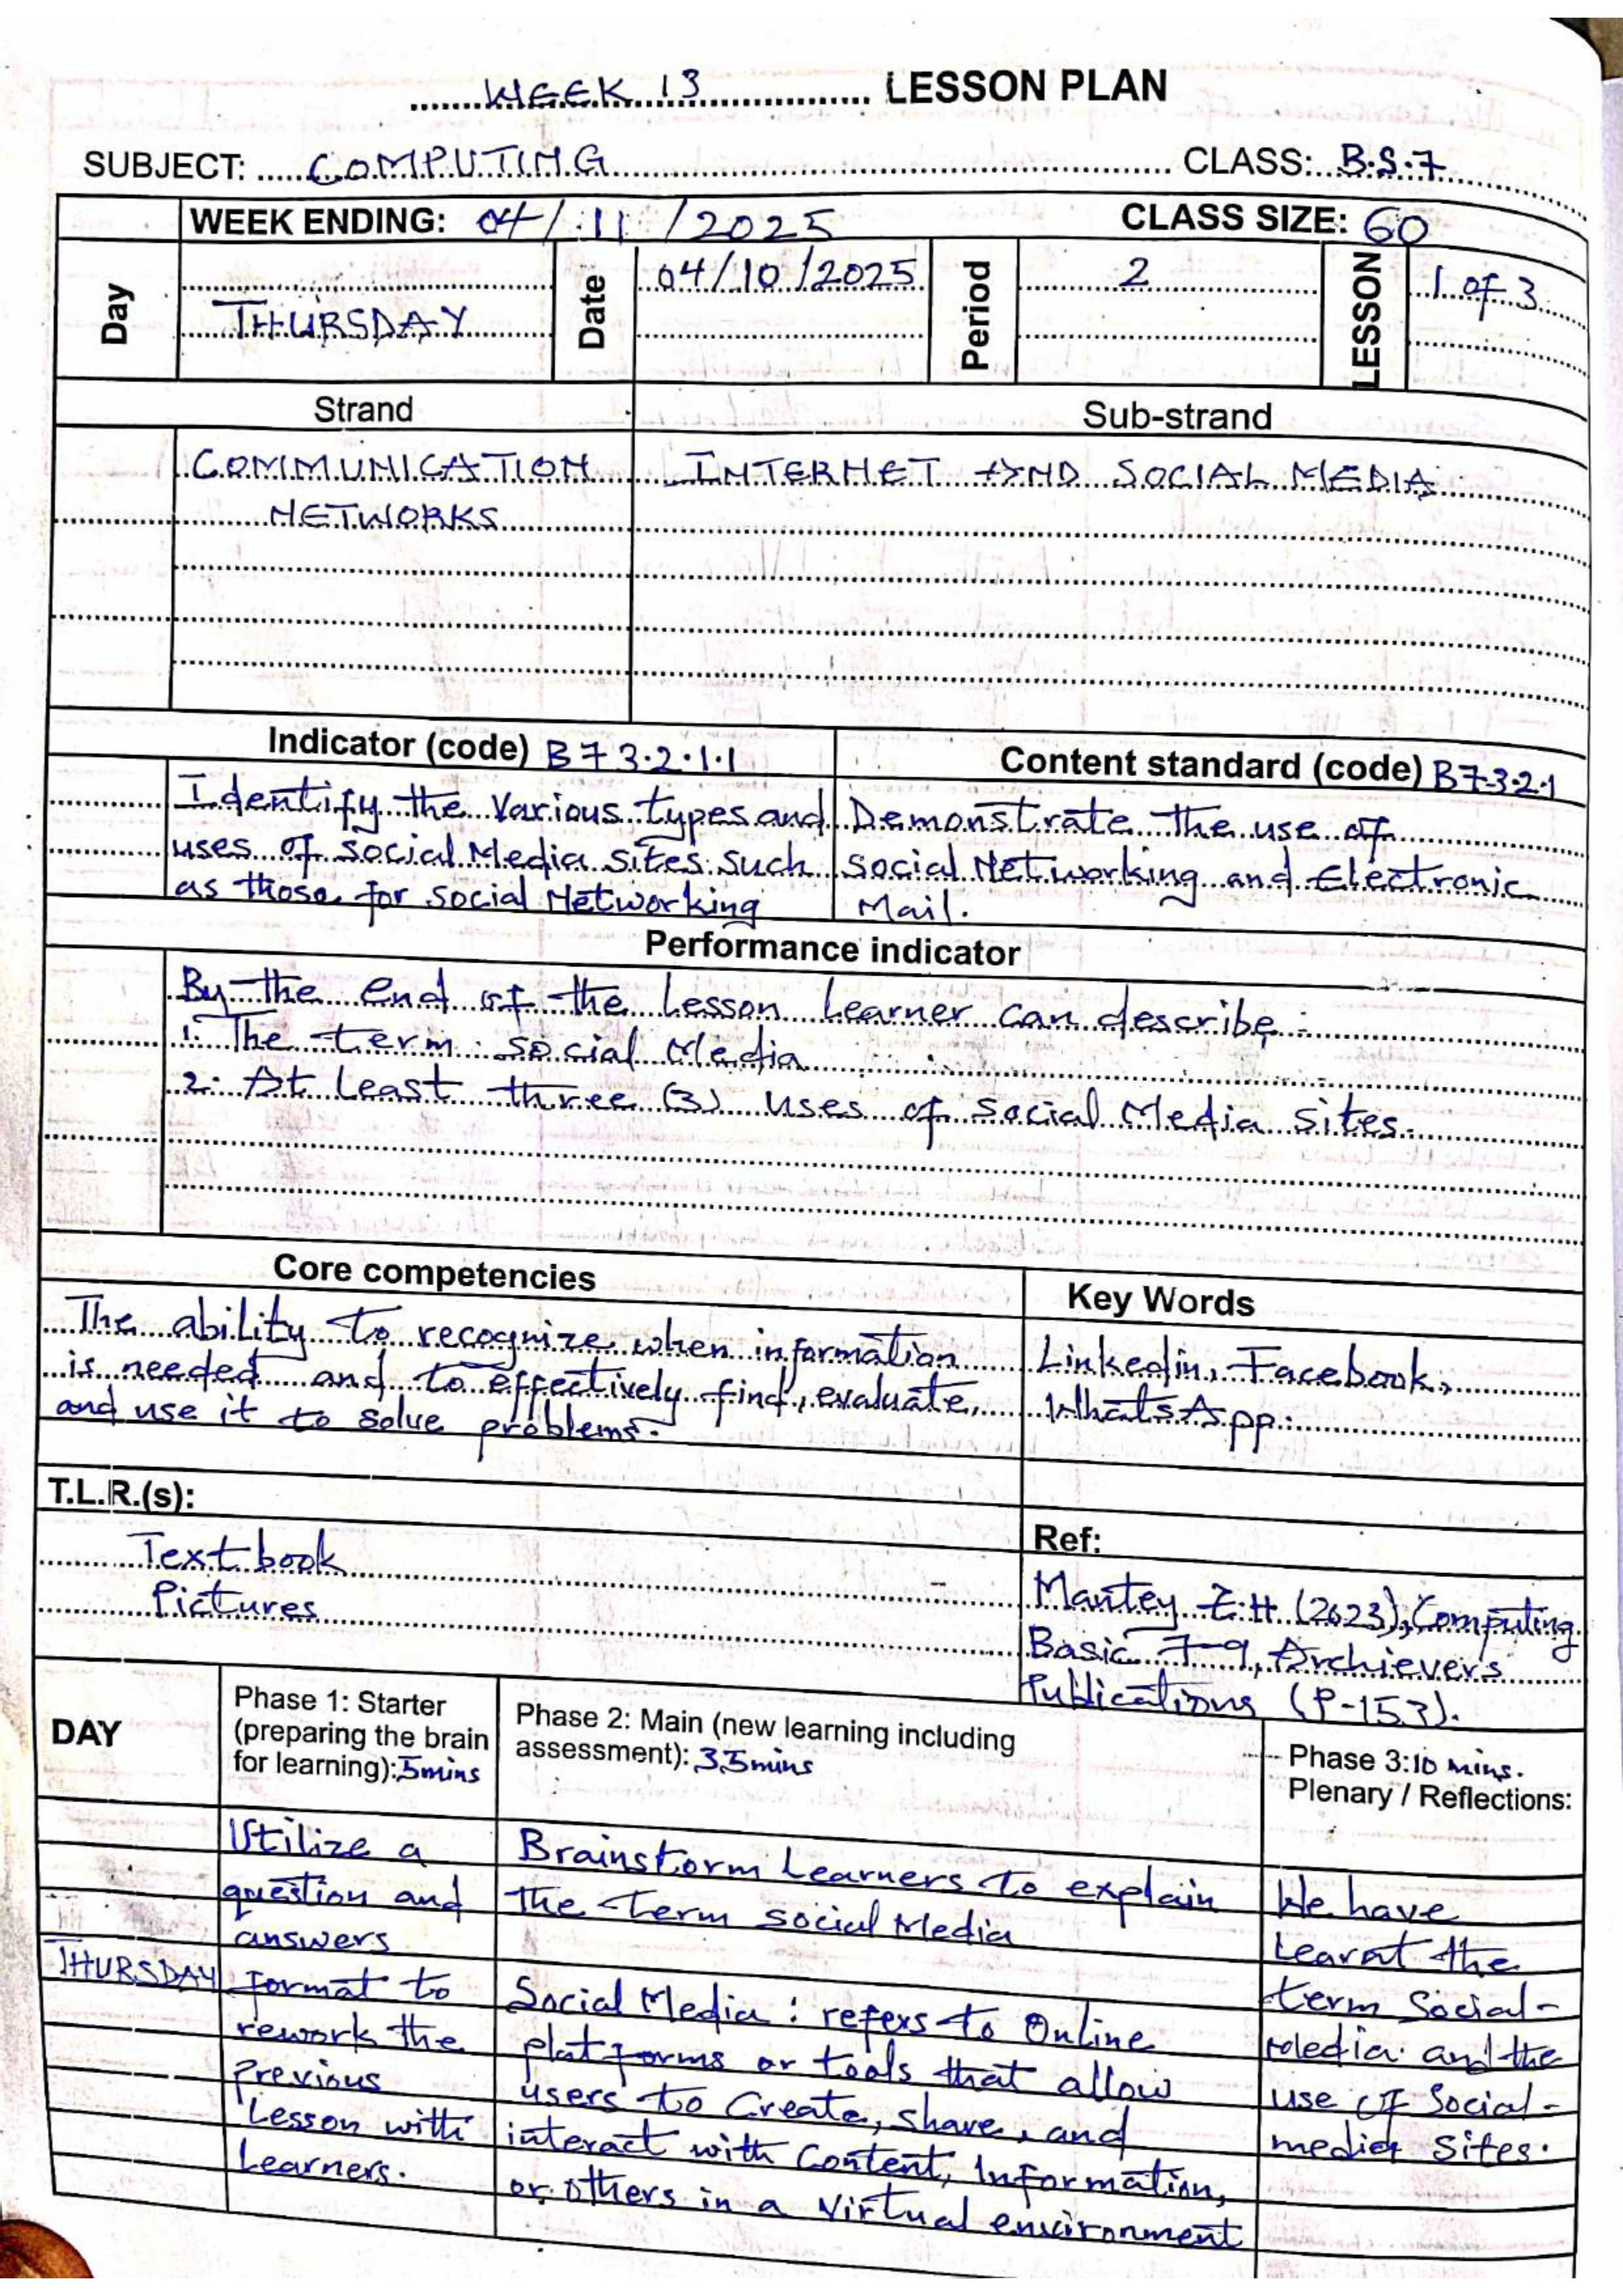 WEEK 13 LESSON PLAN
SUBJECT: COMPUTING CLASS: B.S.7
WEEK ENDING: 04/11/2025 CLASS SIZE: 60
Day THURSDAY Date 04/10/2025 Period 2 LESSON 1 of 3
Strand Sub-strand
COMMUNICATION INTERNET AND SOCIAL MEDIA
NETWORKS
Indicator (code) B7 3.2.1.1 Content standard (code) B7-3.2.1
Identify the various types and
uses of social Media sites such
as those for social Networking
Demonstrate the use of
social Networking and Electronic
Mail.
Performance indicator
By the end of the lesson learner can describe:
1. The term social Media
2. At least three (3) uses of social Media sites.
Core competencies
The ability to recognize when information
is needed and to effectively find, evaluate,
and use it to solve problems.
Key Words
Linkedin, Facebook,
WhatsApp.
T.L.R.(s):
Textbook
Pictures
Ref:
Mantey E.H (2023), Computing
Basic 7-9, Archiever's
Publications (P-153).
DAY
Phase 1: Starter
(preparing the brain
for learning): 5mins
Phase 2: Main (new learning including
assessment): 35mins
Phase 3: 10 mins.
Plenary / Reflections:
THURSDAY
Utilize a
question and
answers
format to
rework the
previous
Lesson with
Learners.
Brainstorm Learners to explain
the term social Media
Social Media: refers to Online
platforms or tools that allow
users to Create, share, and
interact with Content, Information,
or others in a virtual environment
We have
Learnt the
term Social-
Media and the
use of Social-
media sites.